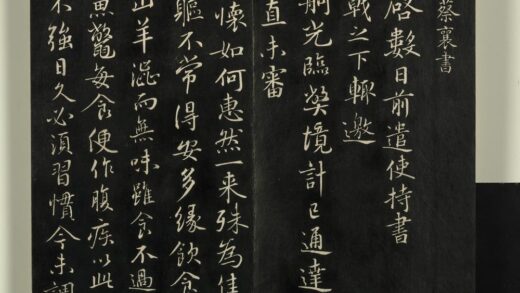 蔡襄書
啓數日前遣使持書
戟之下輙邀
舸光臨弊境計已通達
直未審
懷如何惠然一来殊為佳
軀不常得安多縁飲食
山羊澁而無味雖食不過
魚鼈每食便作腹疾以此
不強日久必須習慣今未